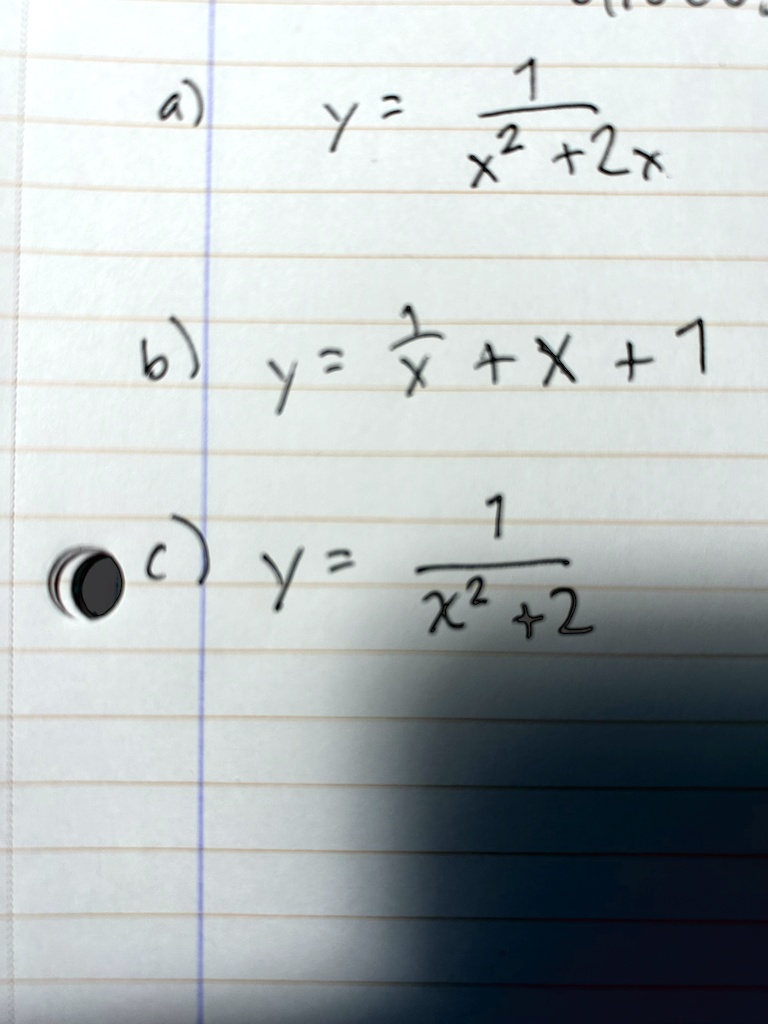 a) y = 1/(x² + 2x)
b) y = 1/x + x + 1
c) y = 1/(x² + 2)